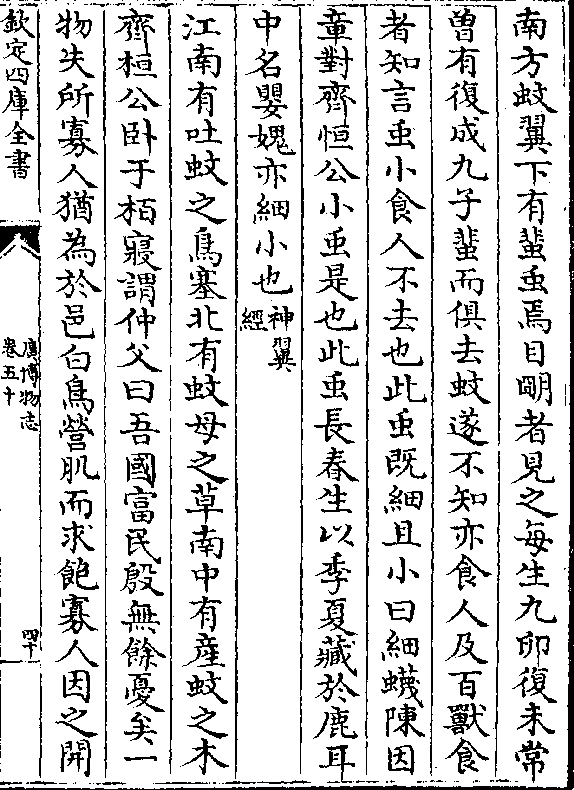 南方蚊翼下有蜚䖝焉目明者見之每生九卵復未常
曽有復成九子蜚而俱去蚊遂不知亦食人及百獸食
者知言䖝小食人不去也此䖝既細且小曰細蠛陳因
章對齊恒公小䖝是也此䖝長春生以季夏藏於鹿耳
中名嬰媿亦細小也神翼經
江南有吐蚊之鳥塞北有蚊母之草南中有産蚊之木
齊桓公卧于栢寢謂仲父曰吾國富民殷無餘憂矣一
物失所寡人猶為於邑白鳥營肌而求飽寡人因之開
欽定四庫全書
廣博物志
卷五十
四十